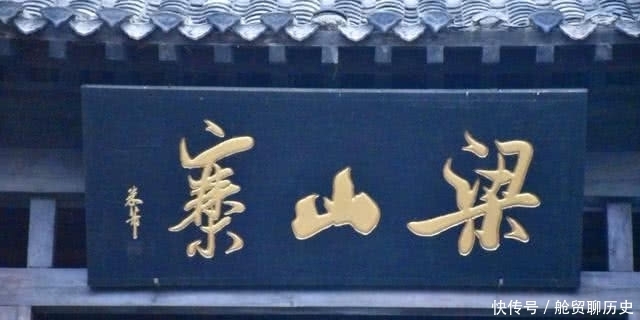 梁山寨
米芾
快传号/舱贸聊历史